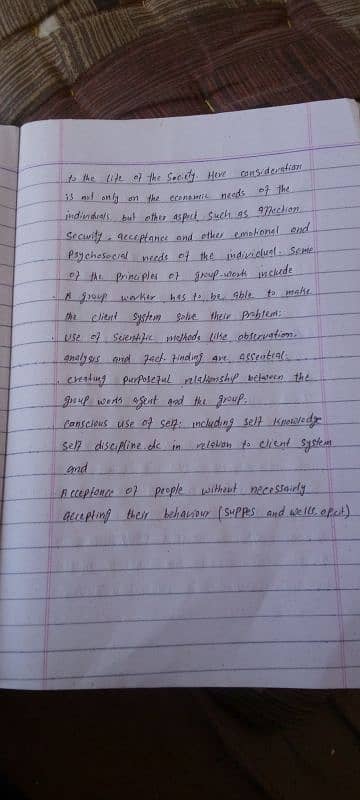 to the life of the Society. Here consideration
is not only on the economic needs of the
individuals but other aspect such as affection
Security, acceptance and other emotional and
Psychosocial needs of the individual. Some
of the principles of group-work include
. A group worker has to be able to make
the client system solve their problem:
. Use of Scientific methods like observation.
analysis and fact-finding are essential.
. creating purposeful relationship between the
group work agent and the group.
conscious use of self: including self knowledge
self discipline etc in relation to client system
and
Acceptance of people without necessarily
accepting their behaviour (Suppes and wells. opcit)